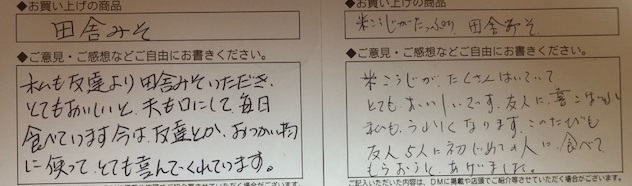 ◆お買い上げの商品
田舎みそ
◆ご意見・ご感想などご自由にお書きください。
私も友達より田舎みそいただき、
とてもおいしいと、夫も口にして、毎日
食べています今は、友達とか、おつかい物
に使って、とても喜んでくれています。
◆お買い上げの商品
米こうじがたっぷり 田舎みそ
◆ご意見・ご感想などご自由にお書きください。
米こうじが、たくさんはいっていて
とても、おいしいです。友人に、喜こばれ
私も、うれしくなります。このたびも
友人5人に初じめての人に、食べて
もらおうと、あげました。
ご記入いただいた内容は、DMに掲載や店頭でご紹介等させていただく場合がございます。